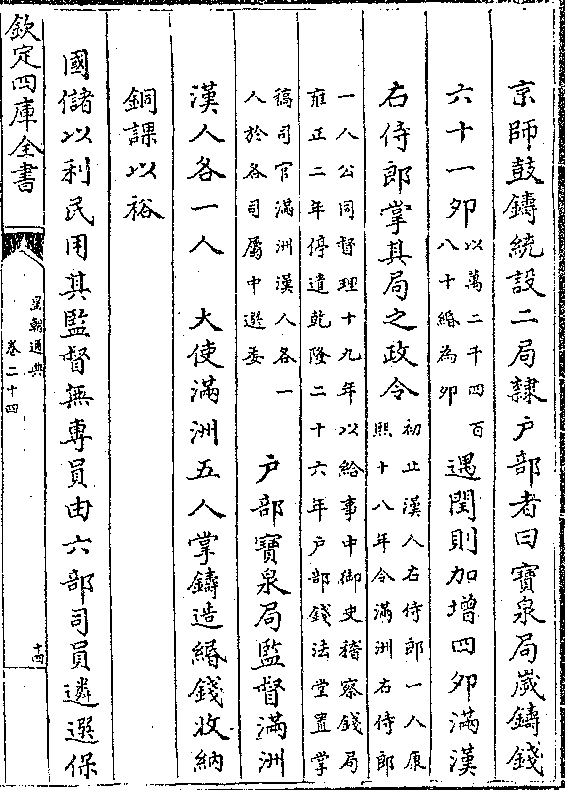 京師鼓鑄統設二局隸户部者曰寶泉局嵗鑄錢
六十一卯以萬二千四百八十緡為卯遇閏則加增四卯滿漢
右侍郎掌其局之政令初止漢人右侍郎一人康熙十八年令滿洲右侍郎
一人公同督理十九年以給事中御史稽察錢局雍正二年停遣乾隆二十六年户部錢法堂置掌
稿司官滿洲漢人各一人於各司屬中遴委 户部寶泉局監督滿洲
漢人各一人 大使滿洲五人掌鑄造緡錢收納
銅課以裕
國儲以利民用其監督無專員由六部司員遴選保
欽定四庫全書
皇朝通典
卷二十四
十四